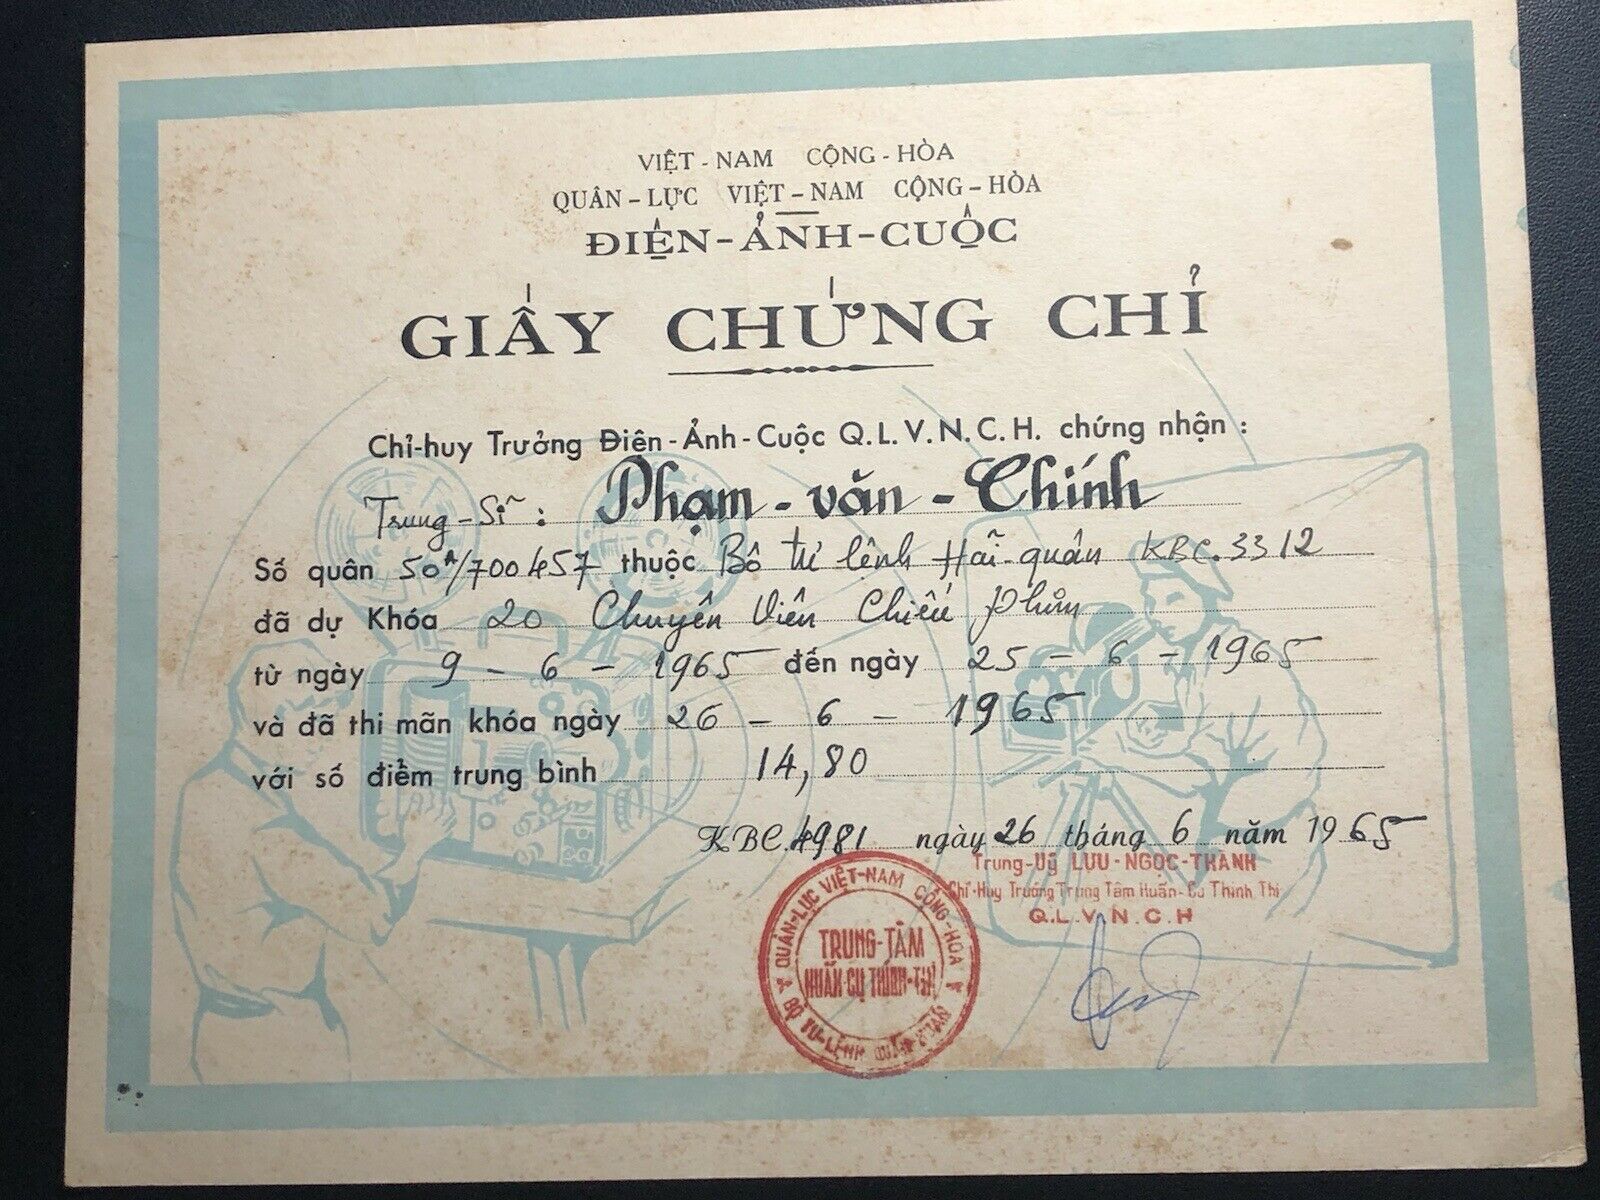 VIỆT - NAM CỘNG - HÒA
QUÂN - LỰC VIỆT - NAM CỘNG - HÒA
ĐIỆN-ẢNH-CUỘC
GIẤY CHỨNG CHỈ
Chỉ-huy Trưởng Điện-Ảnh-Cuộc Q.L.V.N.C.H. chứng nhận :
Trung-Sĩ : Phạm-văn-Chính
Số quân 50A/700457 thuộc Bộ tư lệnh Hải-quân KBC.3312
đã dự Khóa 20 Chuyên Viên Chiếu Phim
từ ngày 9 - 6 - 1965 đến ngày 25 - 6 - 1965
và đã thi mãn khóa ngày 26 - 6 - 1965
với số điểm trung bình 14,80
KBC.4981 ngày 26 tháng 6 năm 1965
Trung-Uý LƯU-NGỌC-THÀNH
Chỉ-Huy Trưởng Trung Tâm Huấn-Cụ Thính Thị
Q.L.V.N.C.H
QUÂN-LỰC VIỆT-NAM CỘNG-HÒA
TRUNG-TÂM
HUẤN-CỤ THÍNH-THỊ
BỘ TƯ-LỆNH